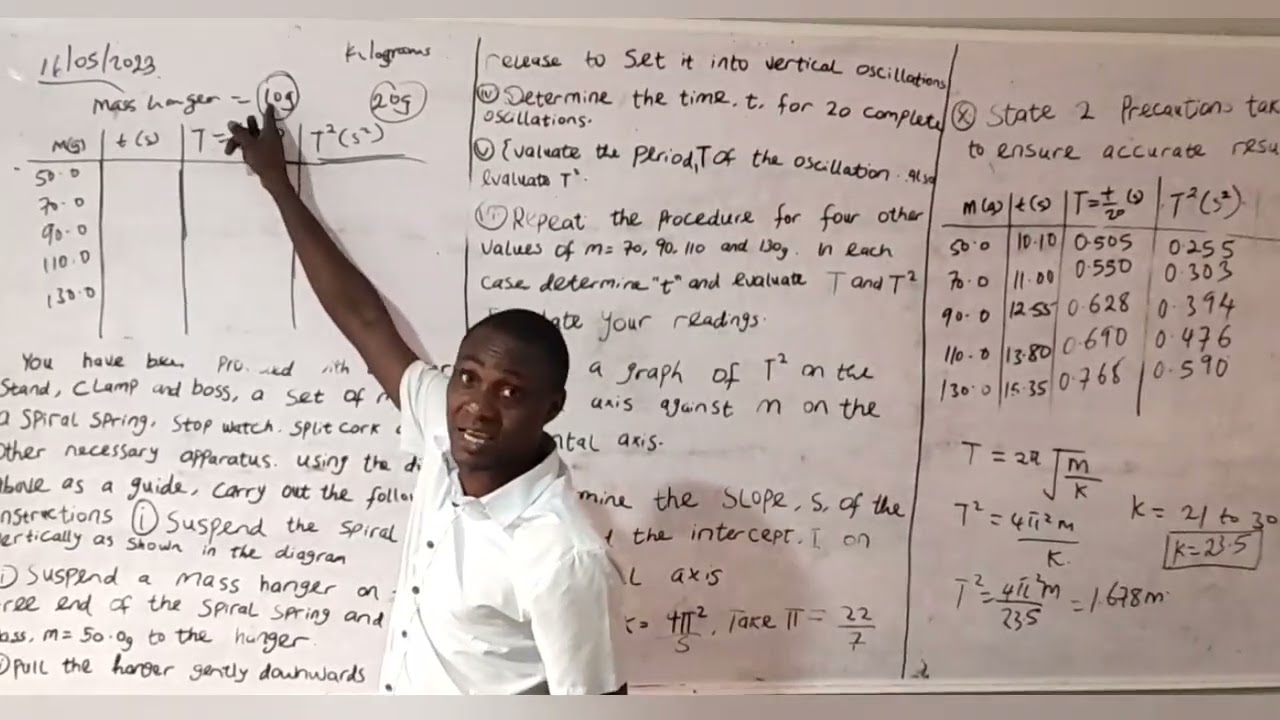 16/05/2023
Kilograms
Mass hanger = 10g 20g
M(g) t(s) T= T²(s²)
50.0
70.0
90.0
110.0
130.0
You have been with
Stand, Clamp and boss, a set of
a Spiral Spring, Stop watch. Split cork
Other necessary apparatus. Using the
above as a guide, carry out the
instructions (i) Suspend the Spiral
vertically as shown in the diagram
i) Suspend a Mass hanger on
free end of the spiral spring and
mass, m = 50.0g to the hunger.
Pull the hanger gently downwards
release to Set it into vertical oscillations
(iv) Determine the time, t, for 20 complete
oscillations.
(v) Evaluate the Period, T of the oscillation. also
evaluate T².
(vi) Repeat the procedure for four other
values of m = 70, 90, 110 and 130g. In each
case determine "t" and evaluate T and T²
your readings.
a graph of T² on the
axis against m on the
axis.
the SLOPE, S, of the
the intercept, I, on
axis
k = 4π²/S, Take π = 22/7
(x) State 2 Precautions
to ensure accurate
m(g) t(s) T=t/20 (s) T²(s²)
50.0 10.10 0.505 0.255
70.0 11.00 0.550 0.303
90.0 12.55 0.628 0.394
110.0 13.80 0.690 0.476
130.0 15.35 0.768 0.590
T = 2π√m/k
T² = 4π²m/k.
k = 21 to 30
k = 23.5
T² = 4π²m/23.5 = 1.678m